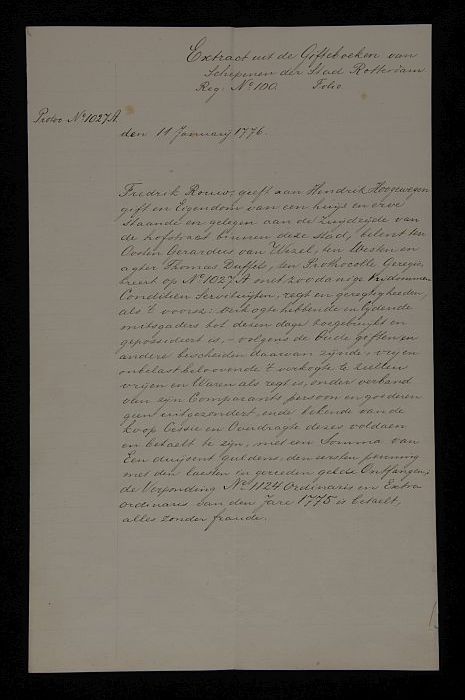 Extract uit de Gifteboeken van
Schepenen der Stad Rotterdam
Reg. No 100. Folio
Protoc No 1027A.
den 11 January 1776.
Fredrik Rouws geeft aan Hendrik Hoogewegen
gift en Eigendom van een huijs en erve
staande en gelegen aan de Zuydzijde van
de hofstraat binnen deze stad, belent ten
Oosten Gerardus van Wezel, ten Westen en
agter Thomas Duffels, ten Prothocolle Geregis,
treert op No 1027A met zoodanige Vridommen
Conditien Servituijten, regt en geregtigheeden,
als 't voorsz. verkogte hebbende en lijdende
mitsgaders tot desen dage toegebruykt en
gepossideert is, volgens de oude giften en
andere bescheiden daarvan zijnde, vrij en
onbelast beloovende 't verkogte te zullen
vrijen en Waren als regt is, onder verband
van zijn Comparants persoon en goederen
geen uitgezondert, ende bekende van de
koop Cessie en Overdragte dezes voldaen
en betaelt te zijn, met een Somma van
Een duijsent guldens, den eersten penning
met den laesten in gereeden gelde Ontfangen;
de Verponding No 1124 Ordinaris en Extra
ordinaris van den Jare 1775 is betaelt,
alles zonder fraude.